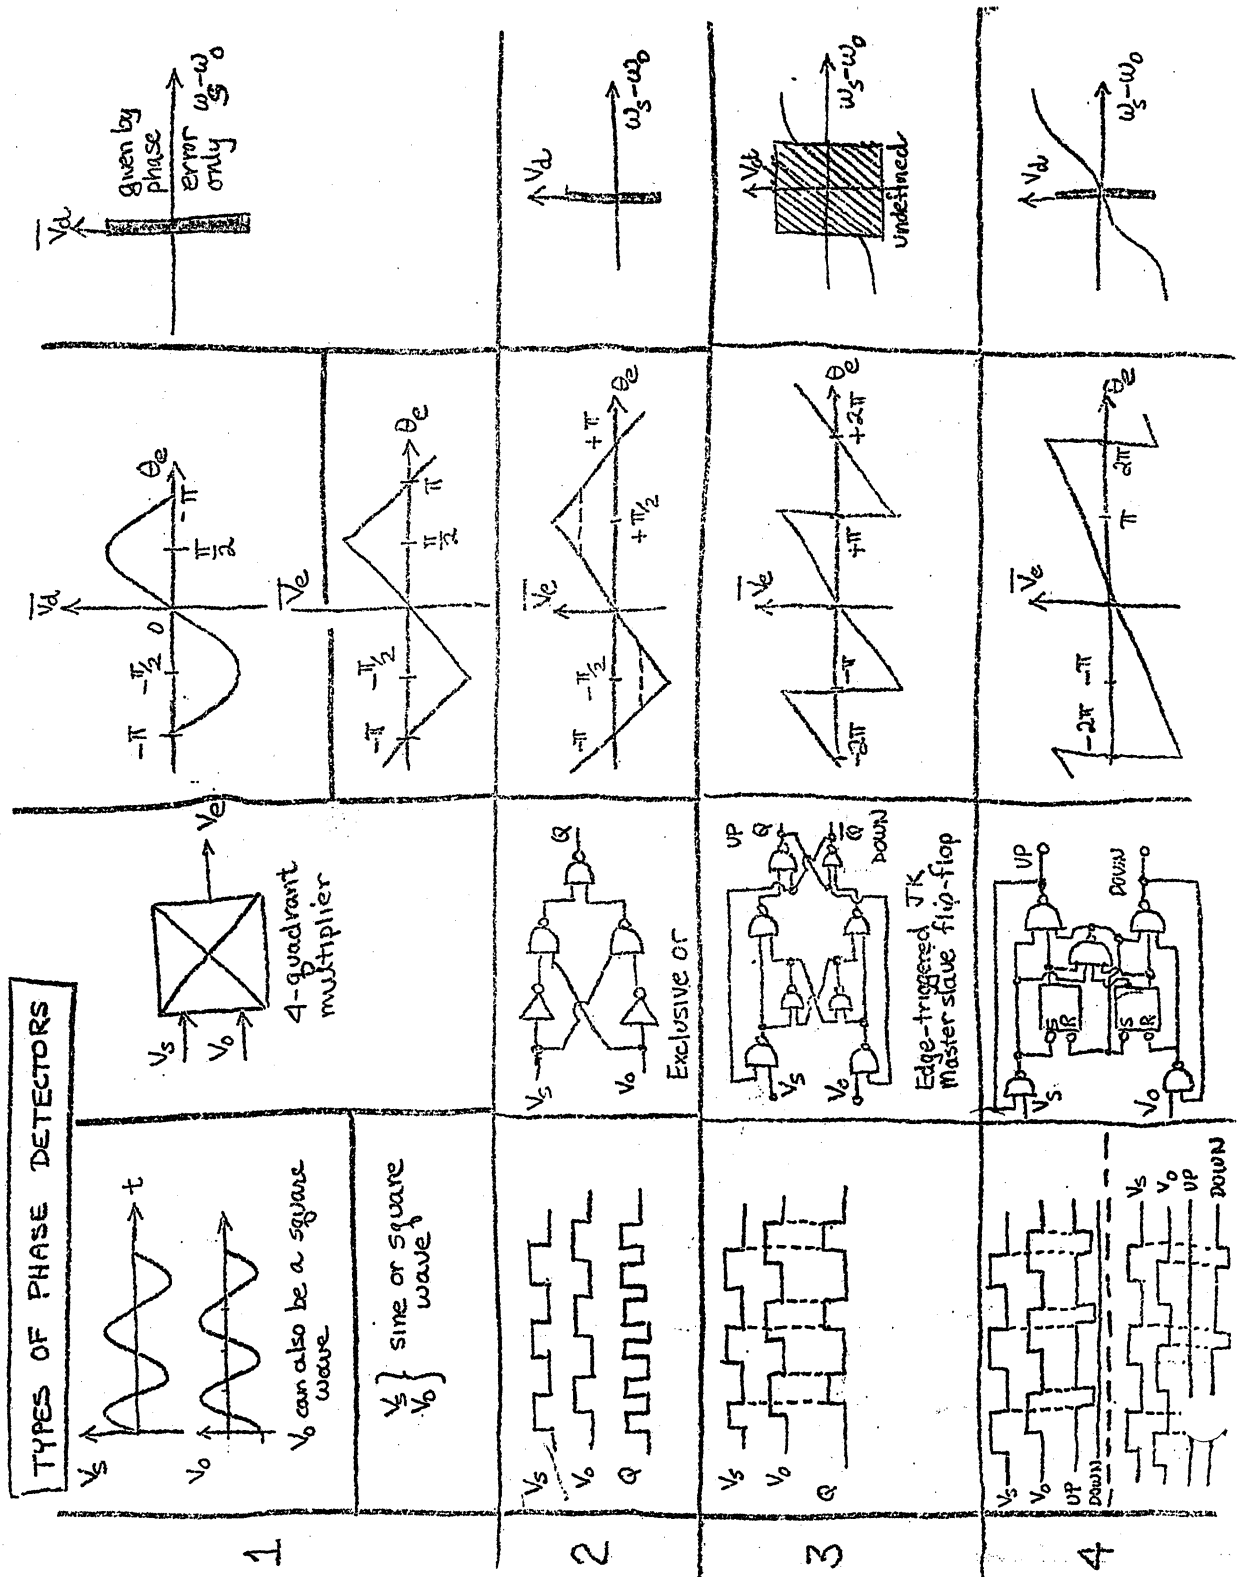 TYPES OF PHASE DETECTORS
1
Vs
t
Vo
Vo can also be a square
wave
Vs
Vo
sine or square
wave
Vs
Vo
Ve
4-quadrant
multiplier
Vd
θe
-π
-π/2
0
π/2
-π
Ve
θe
-π
-π/2
π/2
π
Vd
given by
phase
error
only
ωs-ωo
2
Vs
Vo
Q
Vs
Vo
Q
Exclusive or
Ve
θe
-π
-π/2
+π/2
+π
Vd
ωs-ωo
3
Vs
Vo
Q
Vs
Vo
UP
Q
Q
DOWN
Edge-triggered JK
Master slave flip-flop
Ve
θe
-2π
-π
+π
+2π
Vd
ωs-ωo
undefined
4
Vs
Vo
UP
DOWN
Vs
Vo
UP
DOWN
Vs
Vo
S
R
S
R
UP
DOWN
Ve
θe
-2π
-π
π
2π
Vd
ωs-ωo